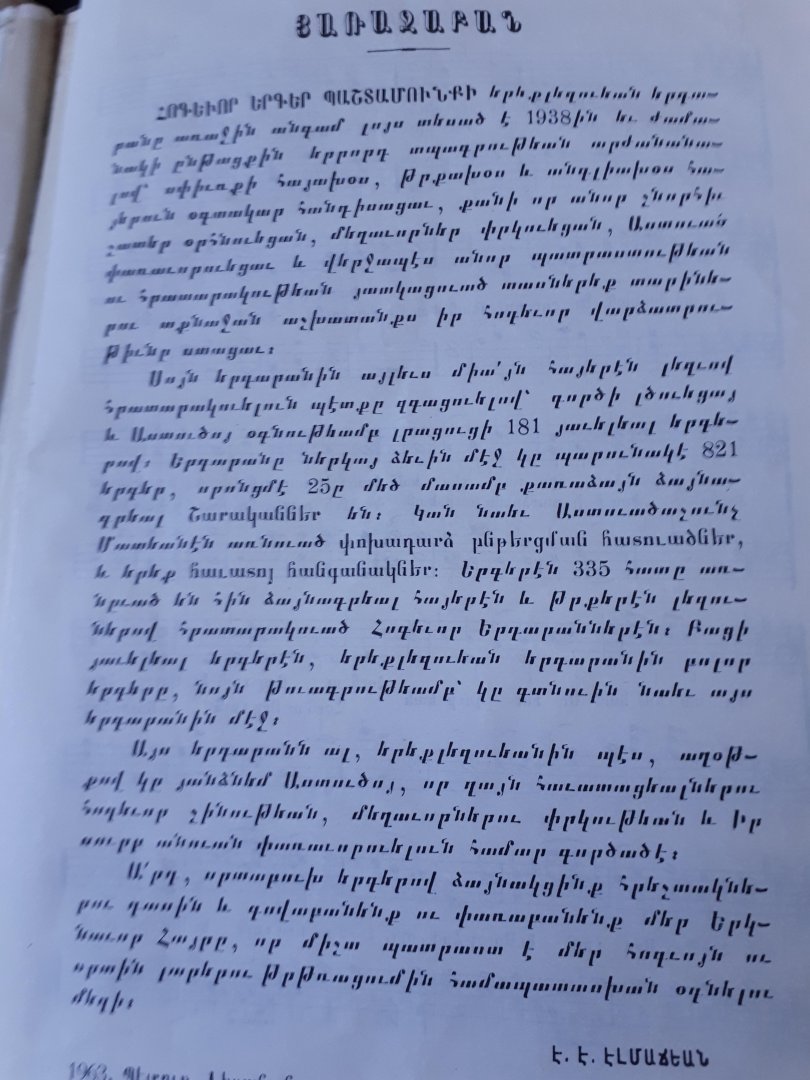 ՅԱՌԱՋԱԲԱՆ
ՀՈԳԵՒՈՐ ԵՐԳԵՐ ՊԱՇՏԱՄՈՒՆՔԻ երեքլեզուեան երգա-
րանը առաջին անգամ լոյս տեսած է 1938ին եւ ժամա-
նակի ընթացքին երրորդ տպագրութեան արժանանա-
լով՝ սփիւռքի հայախօս, թրքախօս և անգլիախօս հա-
յերուն օգտակար հանդիսացաւ, քանի որ անոր շնորհիւ
շատեր օրհնուեցան, մեղաւորներ փրկուեցան, Աստուած
փառաւորուեցաւ և վերջապէս անոր պատրաստութեան
ու հրատարակութեան յատկացուած տասներեք տարինե-
րու աքնաջան աշխատանքս իր հոգեւոր վարձատրու-
թիւնը ստացաւ։
Սոյն երգարանին այլեւս միա՛յն հայերէն լեզուով
հրատարակուելուն պէտքը զգացուելով՝ գործի լծուեցայ
և Աստուծոյ օգնութեամբ լրացուցի 181 յաւելեալ երգե-
րով։ Երգարանը ներկայ ձեւին մէջ կը պարունակէ 821
երգեր, որոնցմէ 25ը մեծ մասամբ քառաձայն ձայնա-
գրեալ Շարականներ են։ Կան նաեւ Աստուածաշունչ
Մատեանէն առնուած փոխադարձ ընթերցման հատուածներ,
և երեք հաւատոյ հանգանակներ։ Երգերէն 335 հատը առ-
նըւած են հին ձայնագրեալ հայերէն և թրքերէն լեզու-
ներով հրատարակուած Հոգեւոր Երգարաններէն։ Բացի
յաւելեալ երգերէն, երեքլեզուեան երգարանին բոլոր
երգերը, նոյն թուագրութեամբ՝ կը գտնուին նաեւ այս
երգարանին մէջ։
Այս երգարանն ալ, երեքլեզուեանին պէս, աղօթ-
քով կը յանձնեմ Աստուծոյ, որ զայն հաւատացեալներու
հոգեւոր շինութեան, մեղաւորներու փրկութեան և Իր
սուրբ անուան փառաւորուելուն համար գործածէ։
Ա՛րդ, սրտաբուխ երգերով ձայնակցինք հրեշտակնե-
րու դասին և գովաբանենք ու փառաբանենք մեր Երկ-
նաւոր Հայրը, որ միշտ պատրաստ է մեր հոգւոյն ու
սրտին լարերու թրթռացումին համապատասխան օգնելու
մեզի։
Է. Է. ԷԼՄԱՃԵԱՆ
1963, Պէյրութ,